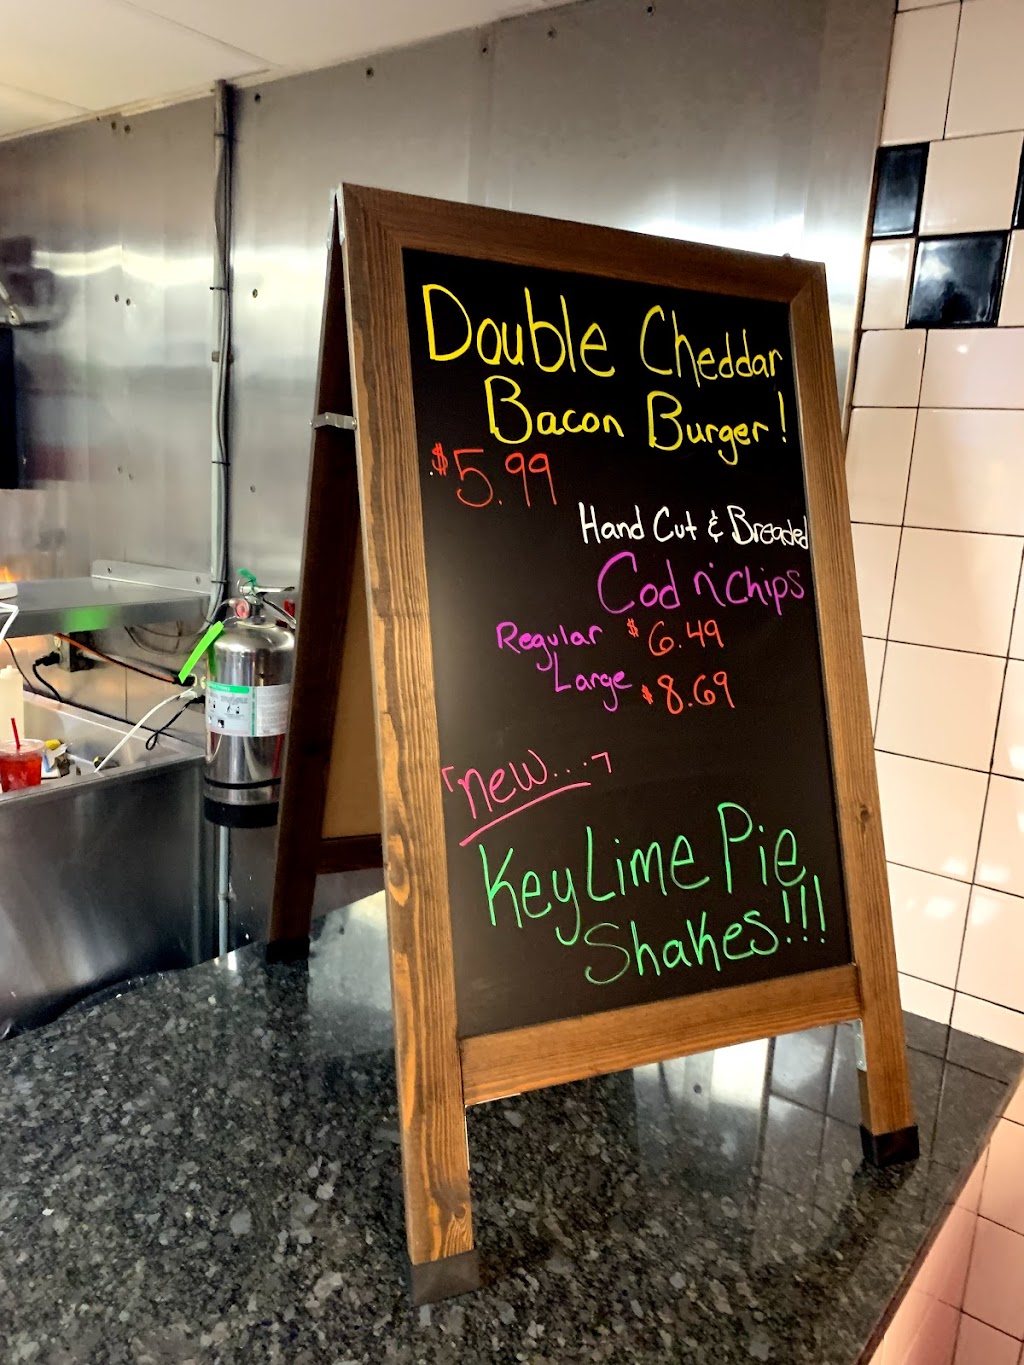 Double Cheddar
Bacon Burger!
$5.99
Hand Cut & Breaded
Cod n' Chips
Regular $6.49
Large $8.69
"new...."
Key Lime Pie
Shakes!!!